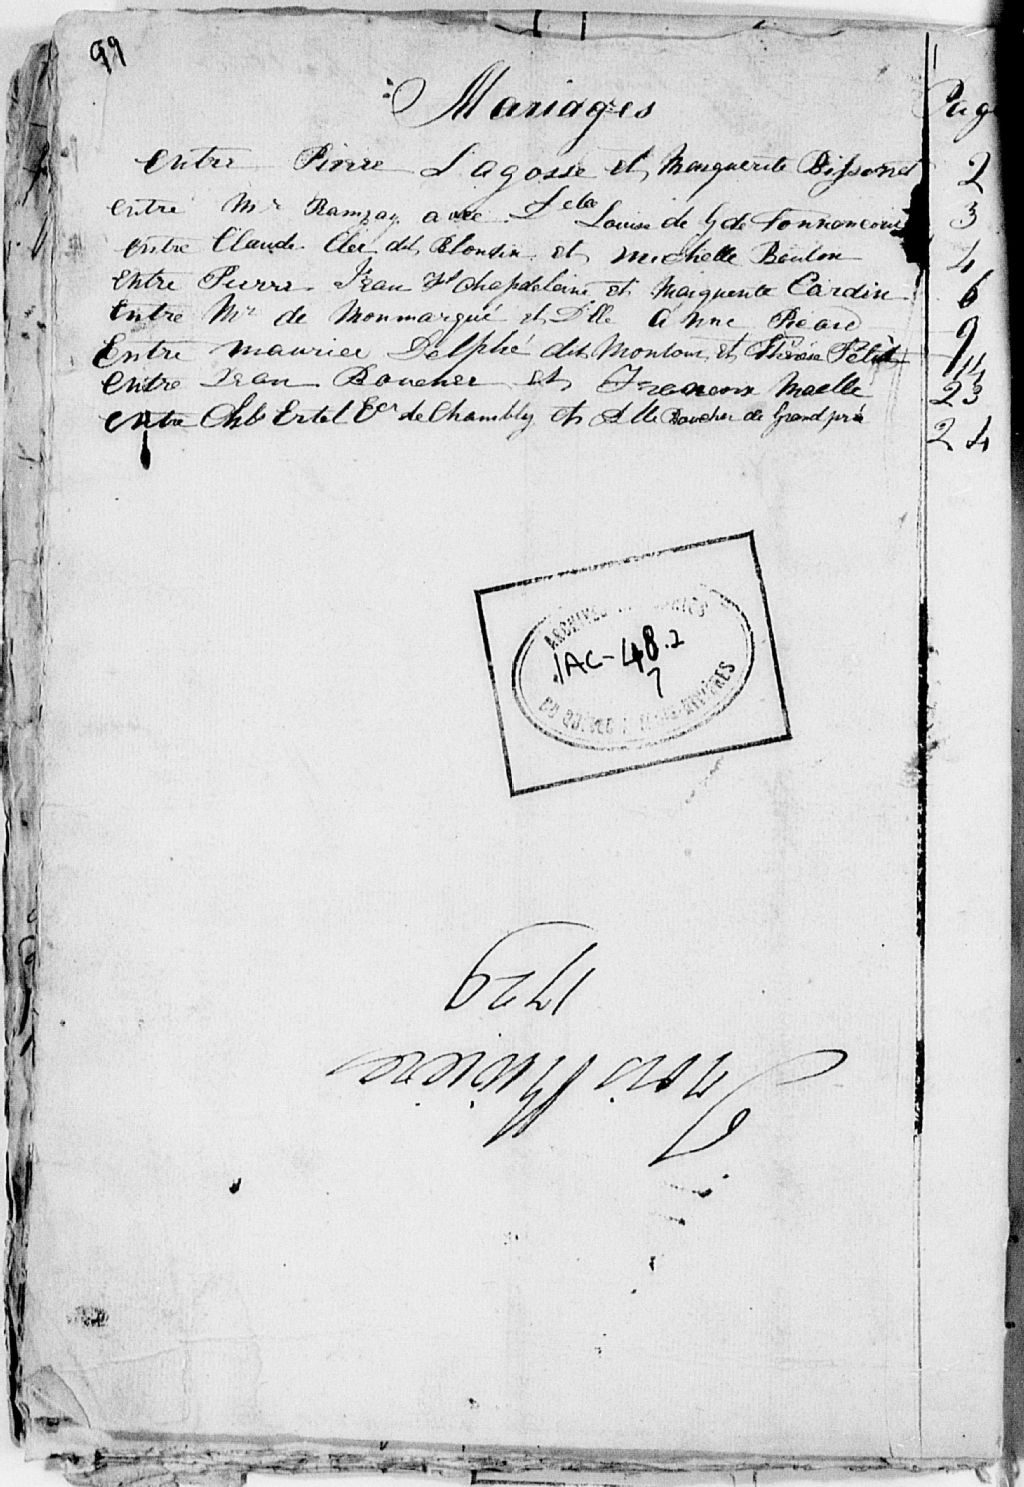 99
Mariages Page
entre Pierre Lagosse et Marguerite Bissonet 2
entre Mr Ramzay avec Delle Louise de G de Tonnancour 3
entre Claude Cler dit Blondin et Michelle Boulon 4
Entre Pierre Jean Bt Chapdelaine et Marguerite Cardin 6
Entre Mr de Monmarqué et Dlle Anne Picard 9
Entre Maurice Delphé dit Montour et Thérèse Petit 14
entre Jean Boucher et Francoise Maelle 23
entre Chls Ertel Ecr de Chambly et Dlle Boucher de Grandpré 24
ARCHIVES
1AC-48.2
7
DU QUÉBEC À TROIS-RIVIÈRES
Trois Riviere
1729